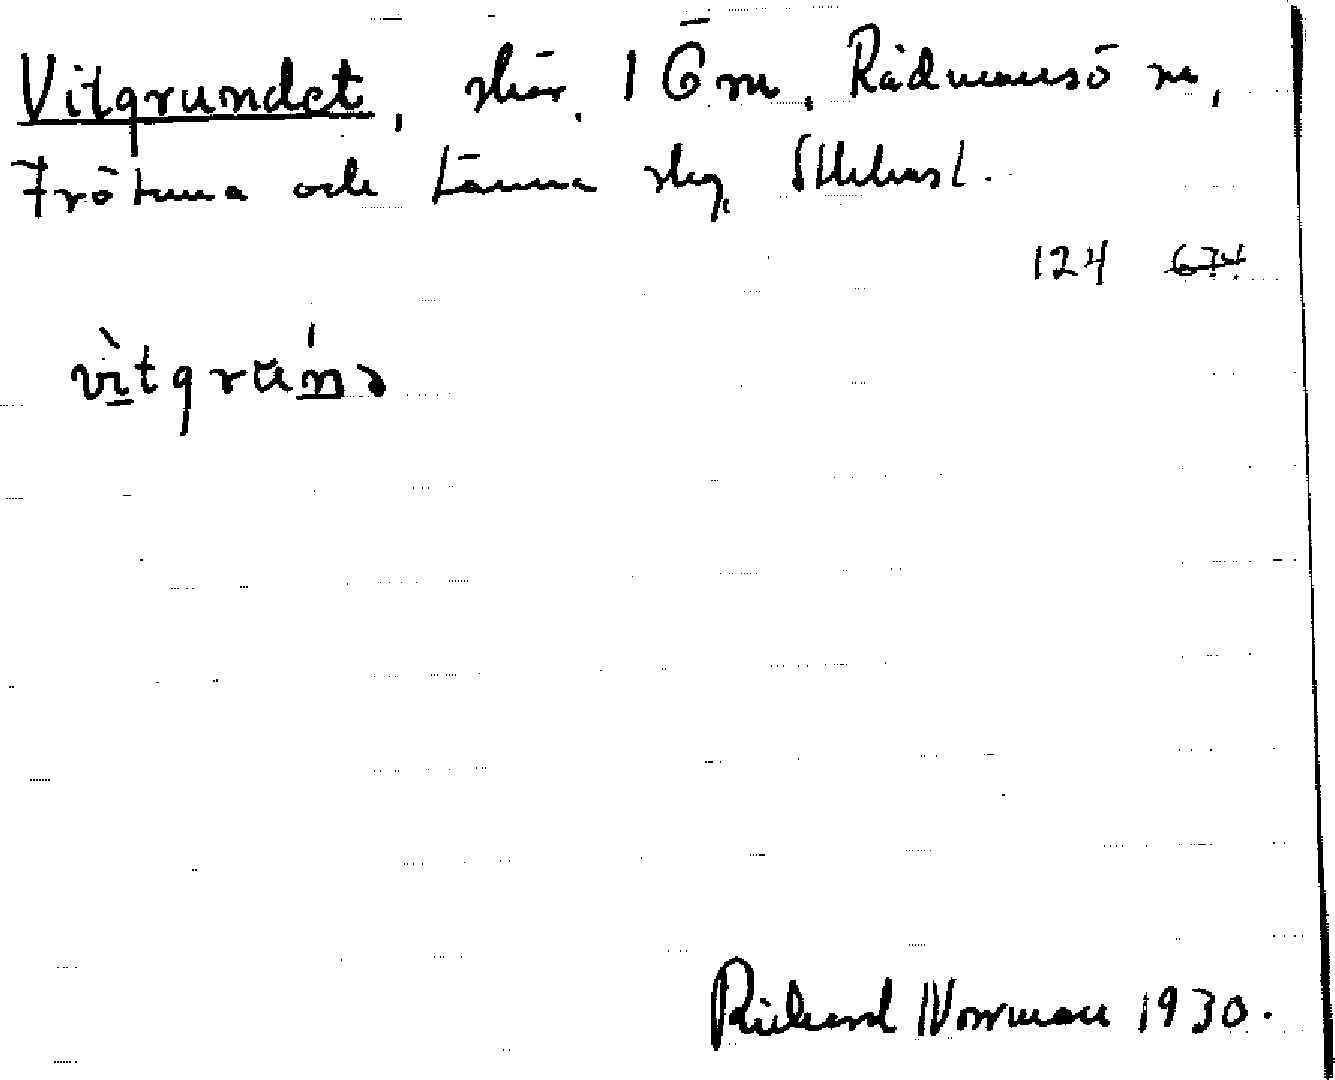 Vitgrundet, skär, I Ö m, Rådmansö sn,
Frötuna och Länna skg, Sthlms l.
124 674
vìtgrún
Richard Norrman 1930.